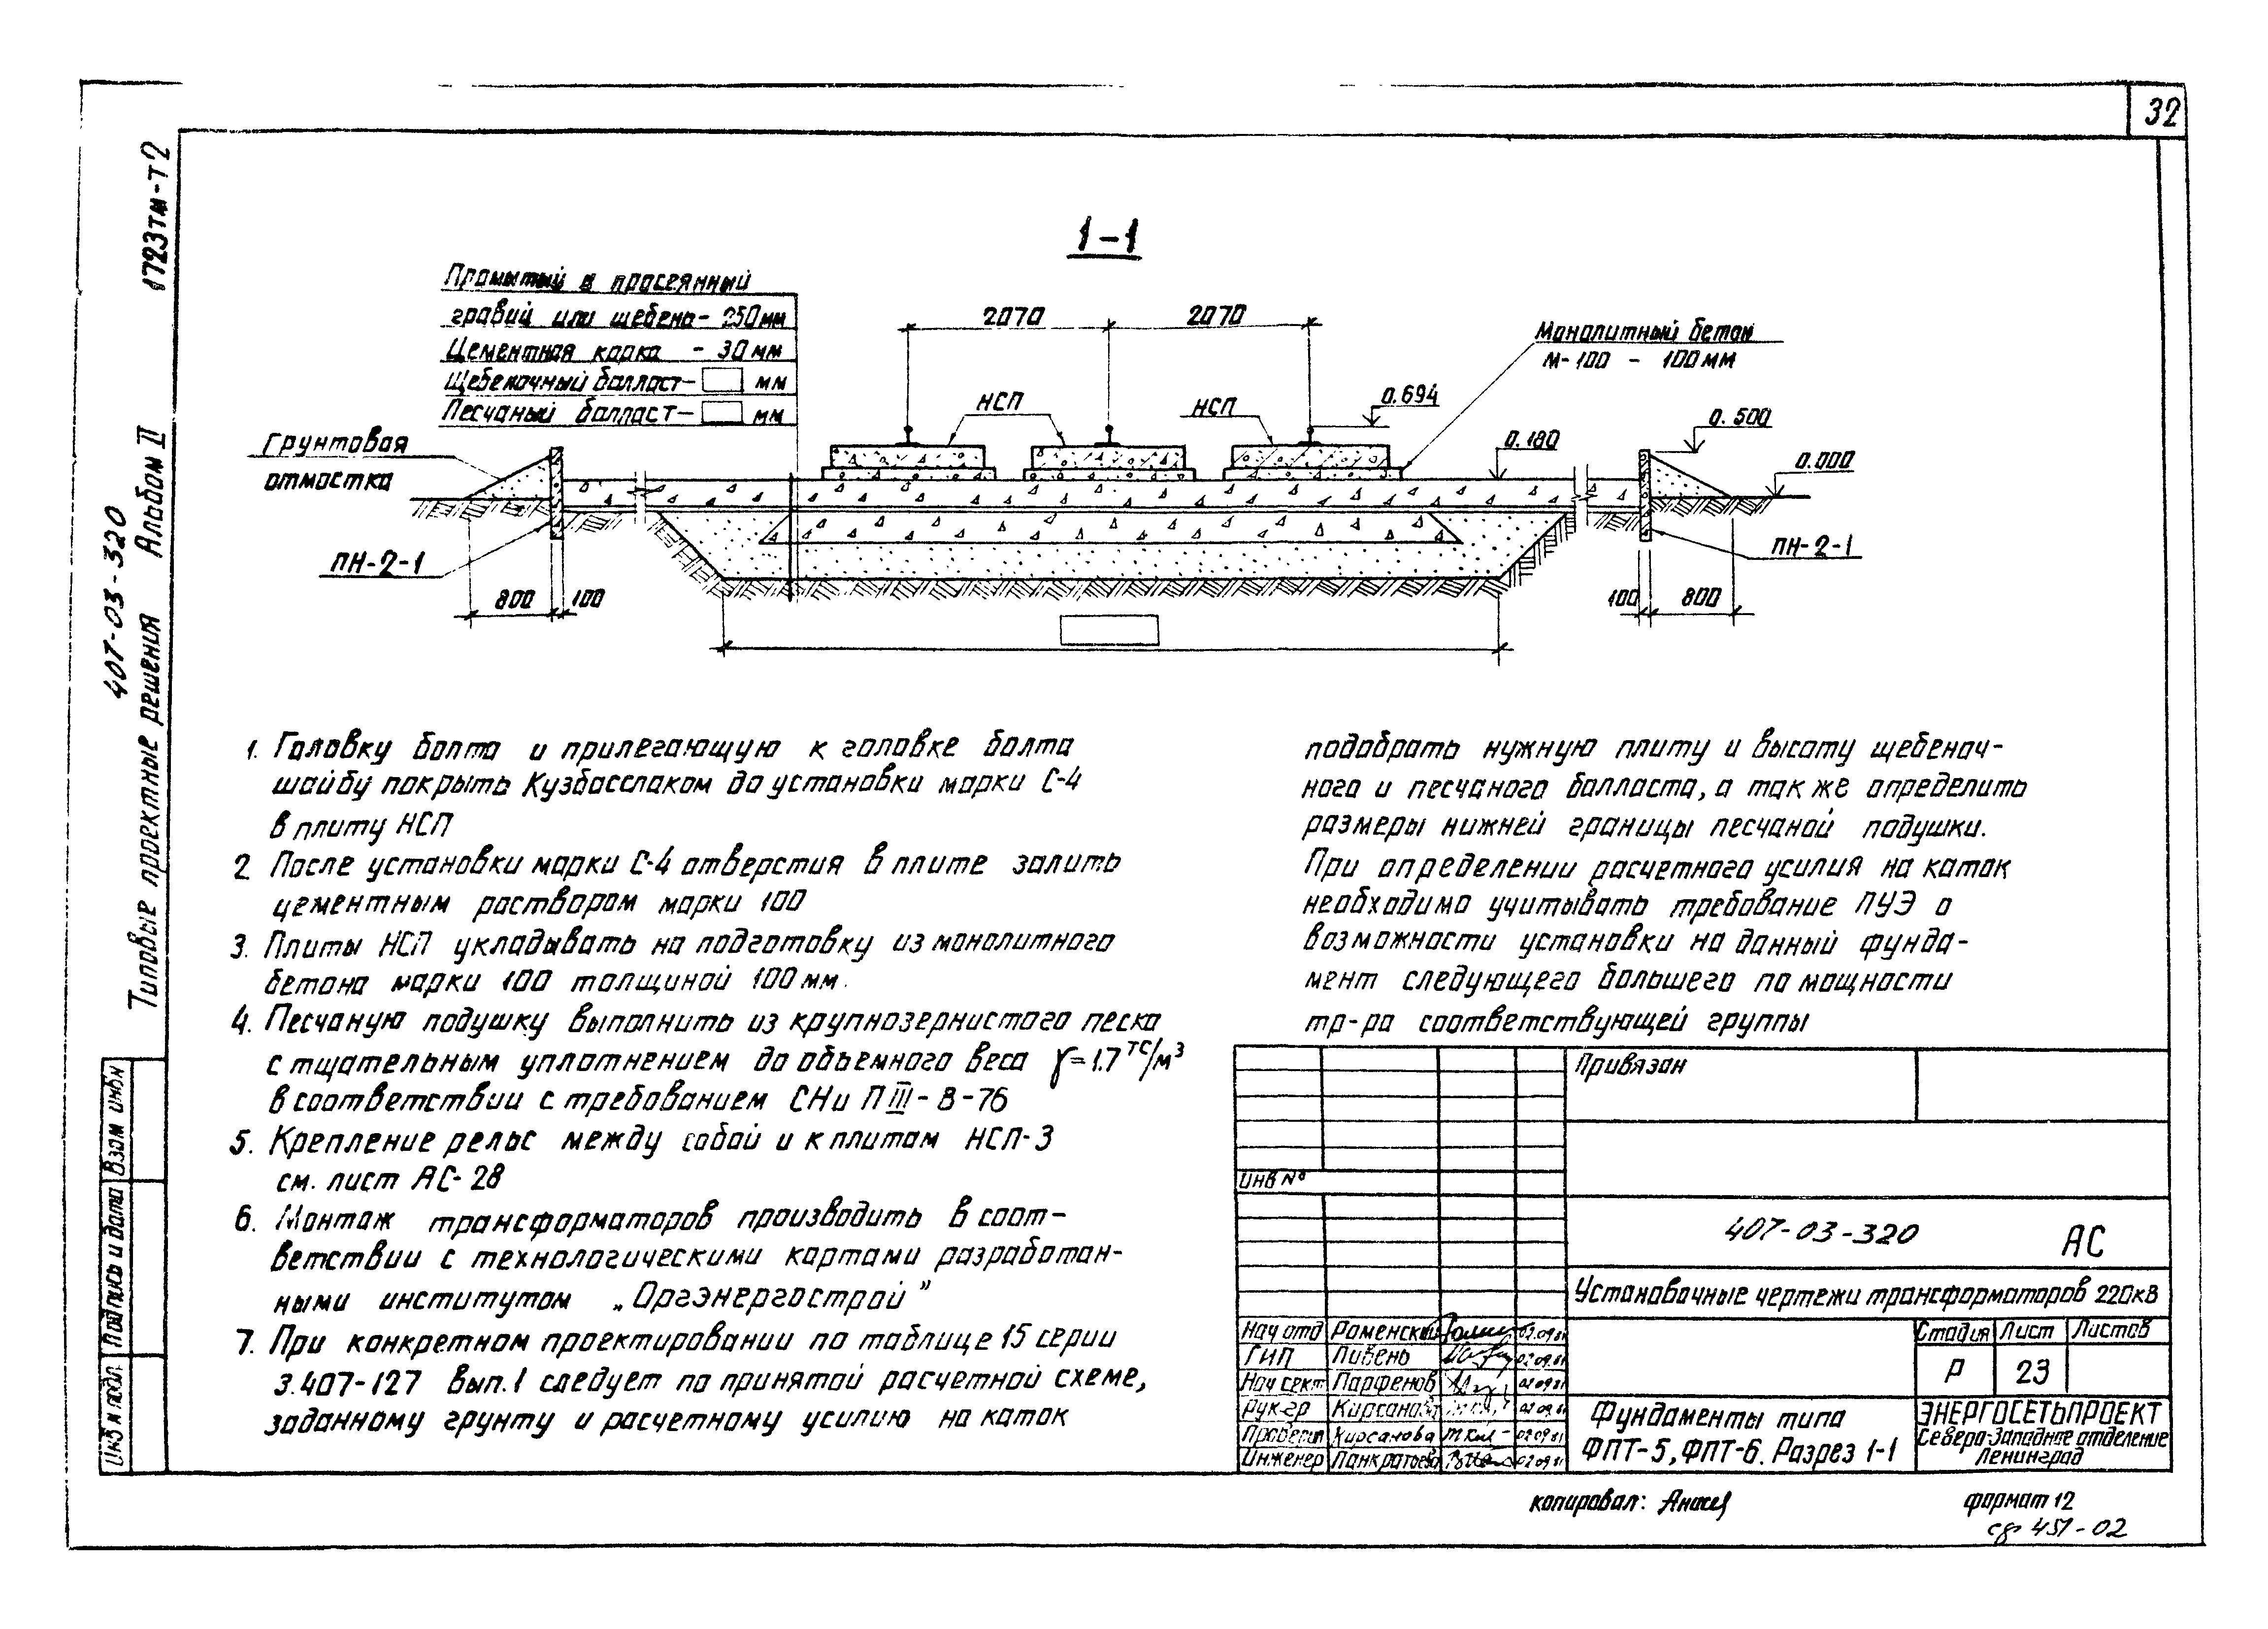 32
1723тм-т2
407-03-320
Типовые проектные решения Альбом II
1-1
Промытый и просеянный
гравий или щебень - 250мм
Цементная корка - 30мм
Щебеночный балласт- мм
Песчаный балласт- мм
2070
2070
Монолитный бетон
М-100 - 100мм
НСП
НСП
0.694
0.180
0.500
0.000
Грунтовая
отмостка
ПН-2-1
ПН-2-1
800
100
100
800
1. Головку болта и прилегающую к головке болта
шайбу покрыть Кузбасслаком до установки марки С-4
в плиту НСП
2. После установки марки С-4 отверстия в плите залить
цементным раствором марки 100
3. Плиты НСП укладывать на подготовку из монолитного
бетона марки 100 толщиной 100мм.
4. Песчаную подушку выполнить из крупнозернистого песка
с тщательным уплотнением до объемного веса γ=1.7 тс/м3
в соответствии с требованием СНиП III-8-76
5. Крепление рельс между собой и к плитам НСП-3
см. лист АС-28
6. Монтаж трансформаторов производить в соот-
ветствии с технологическими картами разработан-
ными институтом „Оргэнергострой”
7. При конкретном проектировании по таблице 15 серии
3.407-127 вып.1 следует по принятой расчетной схеме,
заданному грунту и расчетному усилию на каток
подобрать нужную плиту и высоту щебеноч-
ного и песчаного балласта, а так же определить
размеры нижней границы песчаной подушки.
При определении расчетного усилия на каток
необходимо учитывать требование ПУЭ о
возможности установки на данный фунда-
мент следующего большего по мощности
тр-ра соответствующей группы
Привязан
Инв №
407-03-320 АС
Установочные чертежи трансформаторов 220кв
Нач отд Роменский 02.09.81
ГИП Ливень 02.09.81
Нач сект Парфенов 02.09.81
Рук.гр Кирсанова 02.09.81
Проверил Кирсанова 02.09.81
Инженер Панкратьева 02.09.81
Стадия Лист Листов
Р 23
Фундаменты типа
ФПТ-5, ФПТ-6. Разрез 1-1
ЭНЕРГОСЕТЬПРОЕКТ
Северо-Западное отделение
Ленинград
Взам инв н
Подпись и дата
Инв N подл.
копировал:
формат 12
сф 451-02